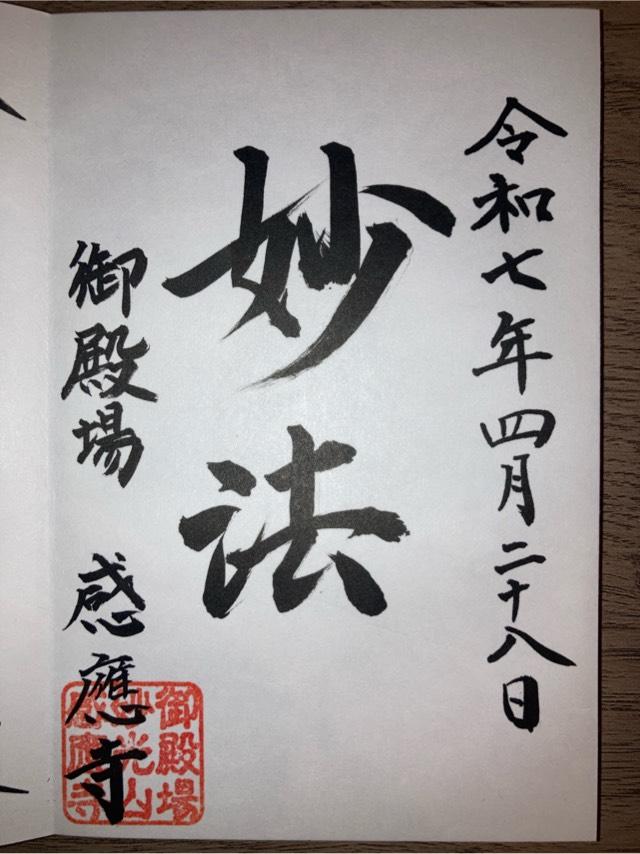 令和七年四月二十八日
妙法
御殿場 感應寺
御殿場
妙光山
感應寺